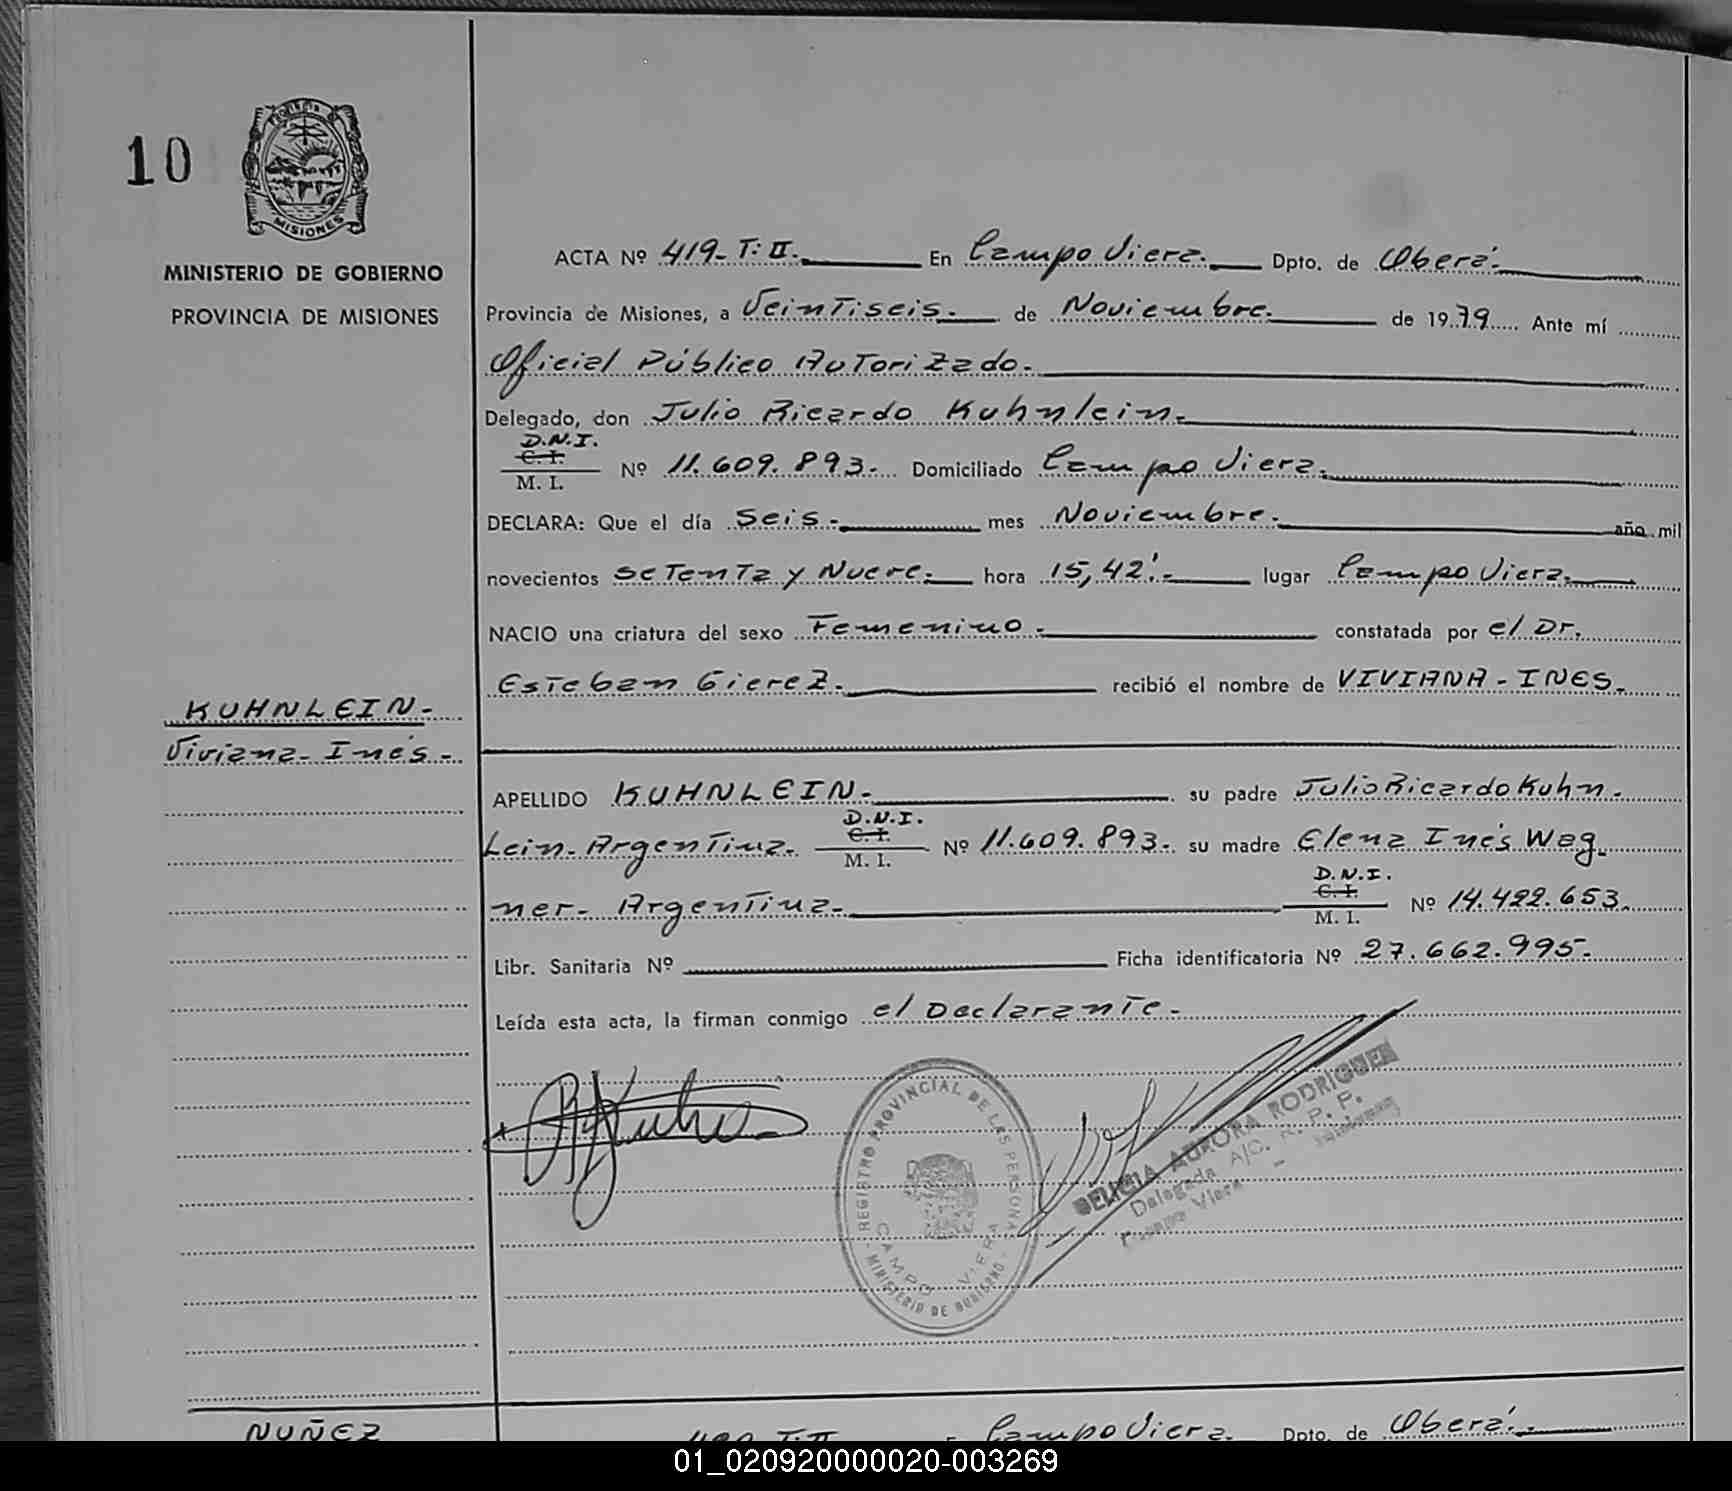 10
PROVINCIA DE
MISIONES
MINISTERIO DE GOBIERNO
PROVINCIA DE MISIONES
KUHNLEIN.-
Viviana - Inés.-
ACTA Nº 419- T: II. En Campo Viera. Dpto. de Oberá.
Provincia de Misiones, a Veintiseis. de Noviembre. de 1979 Ante mí
Oficial Público Autorizado.
Delegado, don Julio Ricardo Kuhnlein.
D.N.I.
C. I.
M. I. Nº 11.609.893.- Domiciliado Campo Viera.
DECLARA: Que el día Seis.- mes Noviembre. año mil
novecientos Setenta y Nueve. hora 15,42'.- lugar Campo Viera.
NACIO una criatura del sexo Femenino.- constatada por el Dr.
Esteban Gierez. recibió el nombre de VIVIANA - INES.
APELLIDO KUHNLEIN.- su padre Julio Ricardo Kuhn-
lein- Argentina- D.N.I. C. I. M. I. Nº 11.609.893.- su madre Elena Inés Wag-
ner- Argentina.- D.N.I. C. I. M. I. Nº 14.422.653.
Libr. Sanitaria Nº Ficha identificatoria Nº 27.662.995.-
Leída esta acta, la firman conmigo el Declarante.-
REGISTRO PROVINCIAL DE LAS PERSONAS
CAMPO VIERA
MINISTERIO DE GOBIERNO
DELICIA AURORA RODRIGUEZ
Delegada A/C. R. P. P.
Campo Viera -
NUÑEZ
Campo Viera. Dpto. de Oberá.
01_020920000020-003269